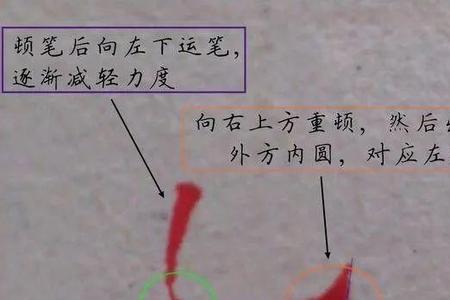 顿笔后向左下运笔，
逐渐减轻力度
向右上方重顿，然后
外方内圆，对应左